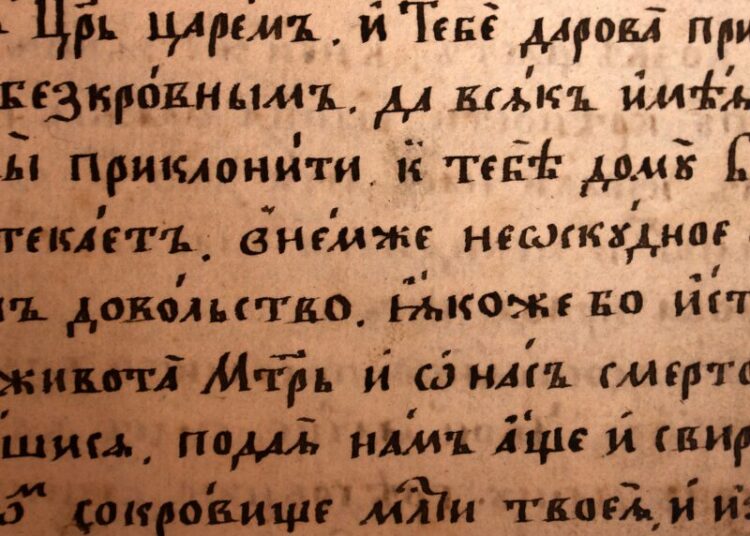 Цр҃ь царе́мъ. и҆ Тебѐ дарова̀ при
безкро́внымъ. да всѧ́къ и҆мѣѧ
приклони́ти. к̾ тебѣ̀ домꙋ̀
текае́тъ. в̾не́мже неѡскꙋ́дное
дово́льство. ꙗ҆́коже бо и҆ст
живота̀ Мт҃рь и҆ ѿ на́съ смерто
шисѧ. пода́й на́мъ а҆́ще и҆ свир
сокро́вище млⷭ҇ти твоеѧ̀, и҆ и҆з